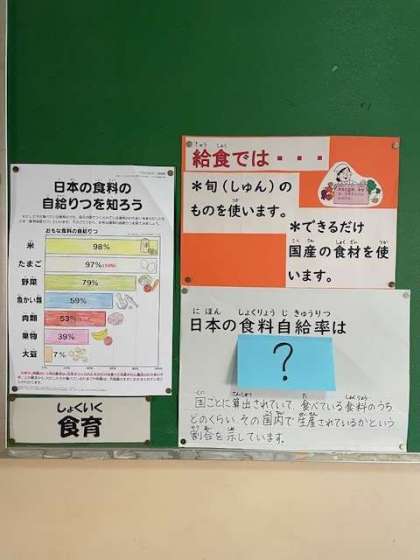 日本の食料の
自給りつを知ろう
おもな食料の自給りつ
米 98%
たまご 97%
野菜 79%
魚かい類 59%
肉類 53%
果物 39%
大豆 7%
しょくいく
食育
きゅう しょく
給食では・・・
＊旬(しゅん)の
ものを使います。
＊できるだけ
こく さん しょく ざい
国産の食材を使
います。
に ほん しょくりょう じ きゅうりつ
日本の食料自給率は
?
国ごとに算出されていて、食べている食料のうち
どのくらいその国内で生産されているかという
割合を示しています。